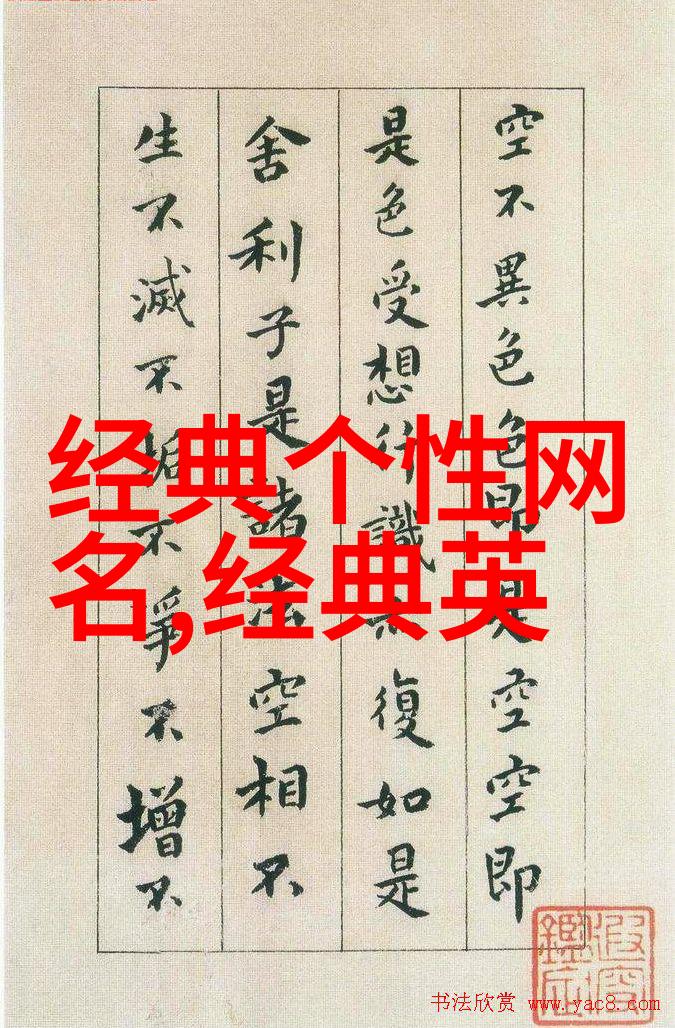 空不異色色即是空空即
是色受想行識亦復如是
舍利子是諸法空相不
生不滅不垢不淨不增不
经典个性网
名,经典英
书法欣赏 www.yac8.com